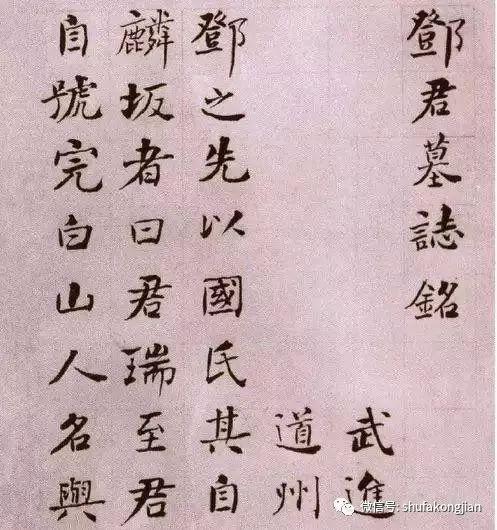 鄧君墓誌銘
武進
道州
鄧之先以國氏其自
麟坂者曰君瑞至君
自號完白山人名與
微信号: shufakongjian